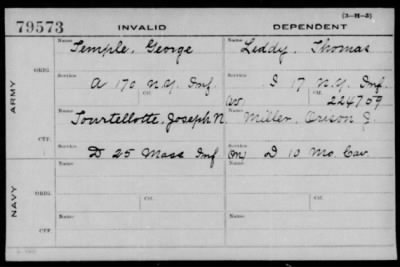 (3-H-3)
79573 INVALID DEPENDENT
Name Name
Temple, George Leddy, Thomas
ORIG.
Service Ctf. Service Ctf.
A 170 N.Y. Inf. I 17 N.Y. Inf.
ARMY
224709
Name Name
Tourtellotte, Joseph N. Miller, Orison
CTF.
Service Service
D 25 Mass Inf D 10 Mo. Cav.
Name Name
ORIG.
Service Ctf. Service Ctf.
NAVY
Name Name
CTF.
Service Service